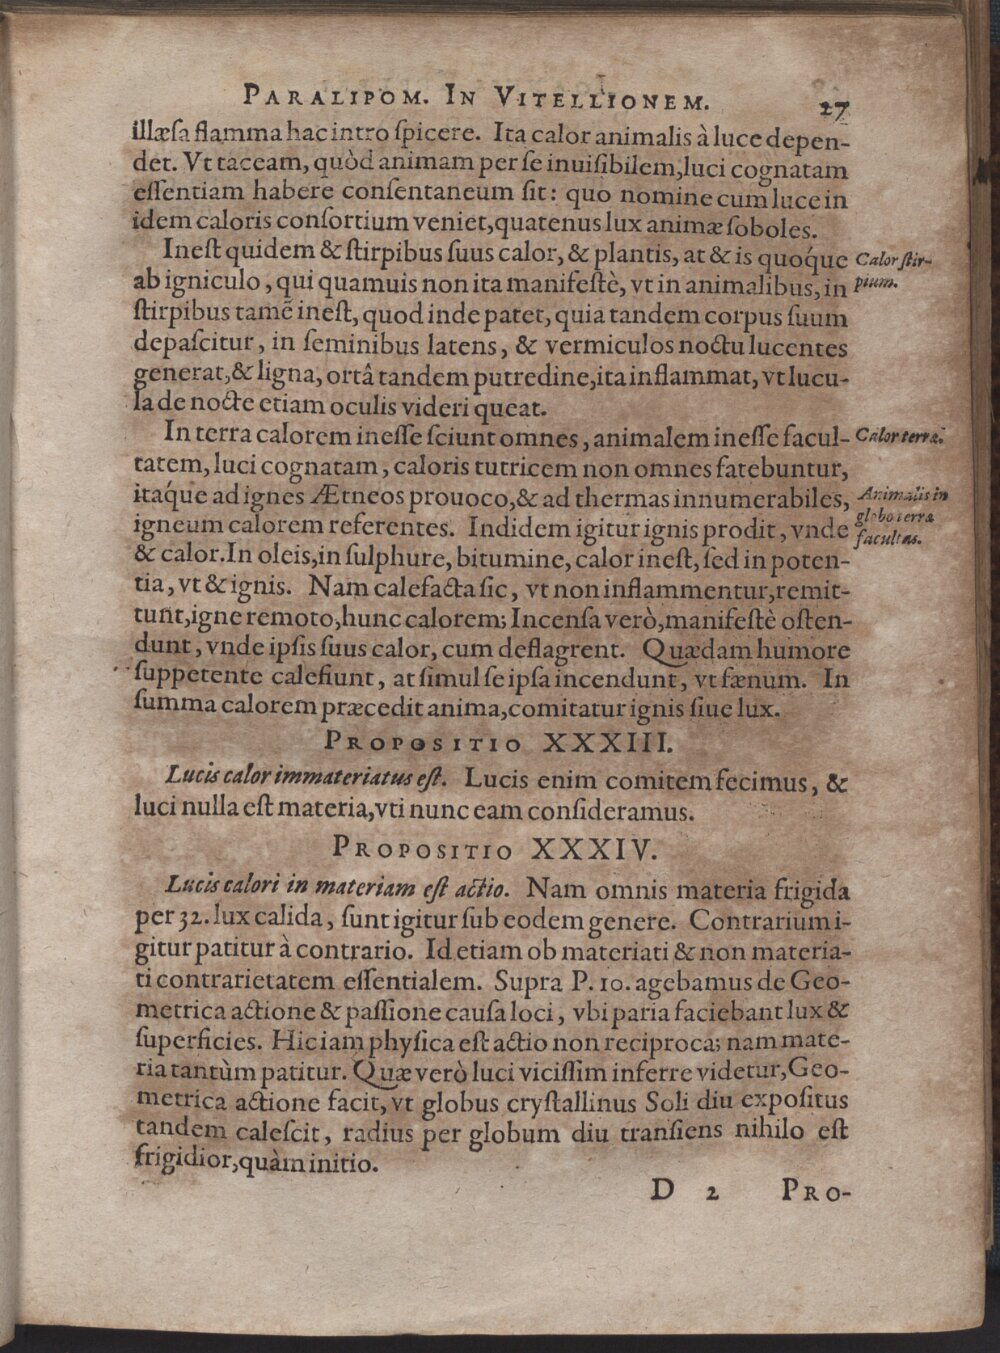 PARALIPOM. IN VITELLIONEM. 27
illæsa flamma hac intro spicere. Ita calor animalis à luce depen-
det. Vt taceam, quòd animam per se inuisibilem, luci cognatam
essentiam habere consentaneum sit: quo nomine cum luce in
idem caloris consortium veniet, quatenus lux animæ soboles.
Inest quidem & stirpibus suus calor, & plantis, at & is quoq́ue
Calor stir-
pium.
ab igniculo, qui quamuis non ita manifestè, vt in animalibus, in
stirpibus tamẽ inest, quod inde patet, quia tandem corpus suum
depascitur, in seminibus latens, & vermiculos noctu lucentes
generat, & ligna, ortâ tandem putredine, ita inflammat, vt lucu-
la de nocte etiam oculis videri queat.
In terra calorem inesse sciunt omnes, animalem inesse facul-
Calor terræ.
tatem, luci cognatam, caloris tutricem non omnes fatebuntur,
itaq́ue ad ignes Ætneos prouoco, & ad thermas innumerabiles,
Animalis in
globo terræ
facultas.
igneum calorem referentes. Indidem igitur ignis prodit, vnde
& calor. In oleis, in sulphure, bitumine, calor inest, sed in poten-
tia, vt & ignis. Nam calefacta sic, vt non inflammentur, remit-
tunt, igne remoto, hunc calorem; Incensa verò, manifestè osten-
dunt, vnde ipsis suus calor, cum deflagrent. Quædam humore
suppetente calefiunt, at simul se ipsa incendunt, vt fænum. In
summa calorem præcedit anima, comitatur ignis siue lux.
PROPOSITIO XXXIII.
Lucis calor immateriatus est. Lucis enim comitem fecimus, &
luci nulla est materia, vti nunc eam consideramus.
PROPOSITIO XXXIV.
Lucis calori in materiam est actio. Nam omnis materia frigida
per 32. lux calida, sunt igitur sub eodem genere. Contrarium i-
gitur patitur à contrario. Id etiam ob materiati & non materia-
ti contrarietatem essentialem. Supra P. 10. agebamus de Geo-
metrica actione & passione causa loci, vbi paria faciebant lux &
superficies. Hic iam physica est actio non reciproca; nam mate-
ria tantùm patitur. Quæ verò luci vicissim inferre videtur, Geo-
metrica actione facit, vt globus crystallinus Soli diu expositus
tandem calescit, radius per globum diu transiens nihilo est
frigidior, quàm initio.
D 2 PRO-